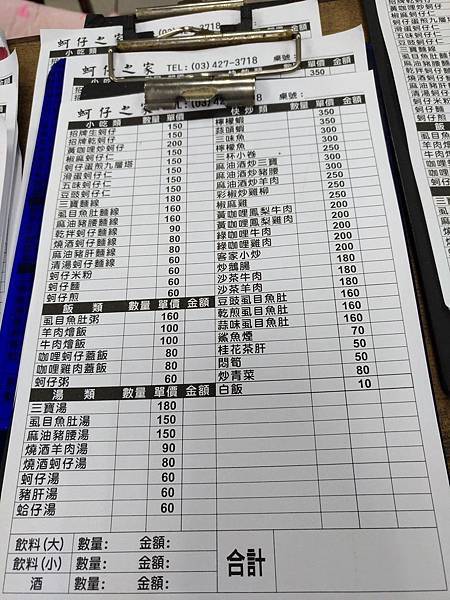 蚵仔之家 TEL:(03)427-3718 桌號:
350
蚵仔之家 TEL:(03)427-3718 桌號:
小吃類 數量 單價 金額
招牌生蚵仔 150
招牌乾蚵仔 150
黃咖哩炒蚵仔 200
椒麻蚵仔仁 150
蚵仔蛋煎九層塔 150
滑蛋蚵仔仁 150
五味蚵仔仁 150
豆豉蚵仔仁 150
三寶麵線 180
虱目魚肚麵線 160
麻油豬腰麵線 160
乾拌蚵仔麵線 90
燒酒蚵仔麵線 80
麻油豬肝麵線 80
清湯蚵仔麵線 60
蚵仔米粉 60
蚵仔麵 60
蚵仔煎 60
飯類 數量 單價 金額
虱目魚肚粥 160
羊肉燴飯 100
牛肉燴飯 100
咖哩蚵仔蓋飯 80
咖哩雞肉蓋飯 80
蚵仔粥 60
湯類 數量 單價 金額
三寶湯 180
虱目魚肚湯 150
麻油豬腰湯 150
燒酒羊肉湯 90
燒酒蚵仔湯 80
蚵仔湯 60
豬肝湯 60
蛤仔湯 60
快炒類 數量 單價 金額
檸檬蝦 350
蒜頭蝦 350
三味魚 300
檸檬魚
三杯小卷
麻油酒炒三寶
麻油酒炒豬腰
麻油酒炒羊肉
彩椒炒雞柳
椒麻雞
黃咖哩鳳梨牛肉 200
黃咖哩鳳梨雞肉 200
綠咖哩牛肉 200
綠咖哩雞肉 200
客家小炒 200
炒鵝腸 180
沙茶牛肉 180
沙茶羊肉 180
豆豉虱目魚肚 160
乾煎虱目魚肚 160
蒜味虱目魚肚 160
鯊魚煙 70
桂花茶肝 50
悶筍 50
炒青菜 80
白飯 10
飲料(大) 數量: 金額:
飲料(小) 數量: 金額:
酒 數量: 金額:
合計